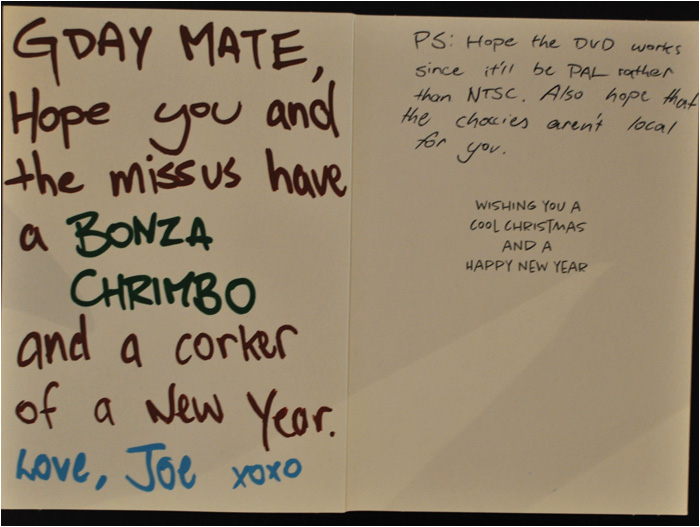 GDAY MATE,
Hope you and
the missus have
a BONZA
CHRIMBO
and a corker
of a New Year.
Love, Joe xoxo
PS: Hope the DVD works
since it'll be PAL rather
than NTSC. Also hope that
the choccies aren't local
for you.
WISHING YOU A
COOL CHRISTMAS
AND A
HAPPY NEW YEAR